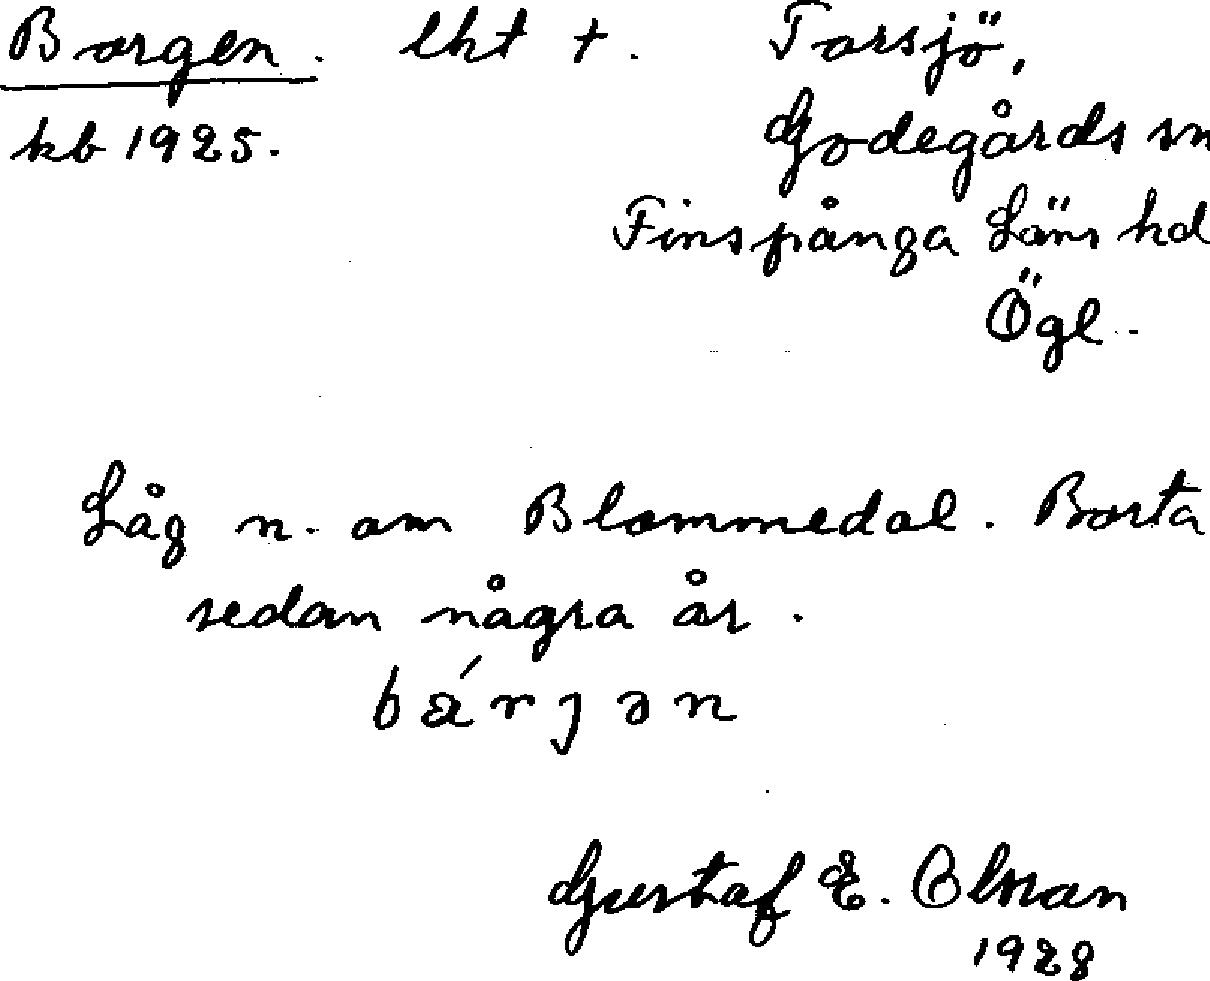 Borgen. lht †. Torsjö,
kb 1925. Godegårds sn
Finspånga Läns hd
Ögl.
Låg n. om Blommedal. Borta
sedan några år.
bárjən
Gustaf E. Olson
1928